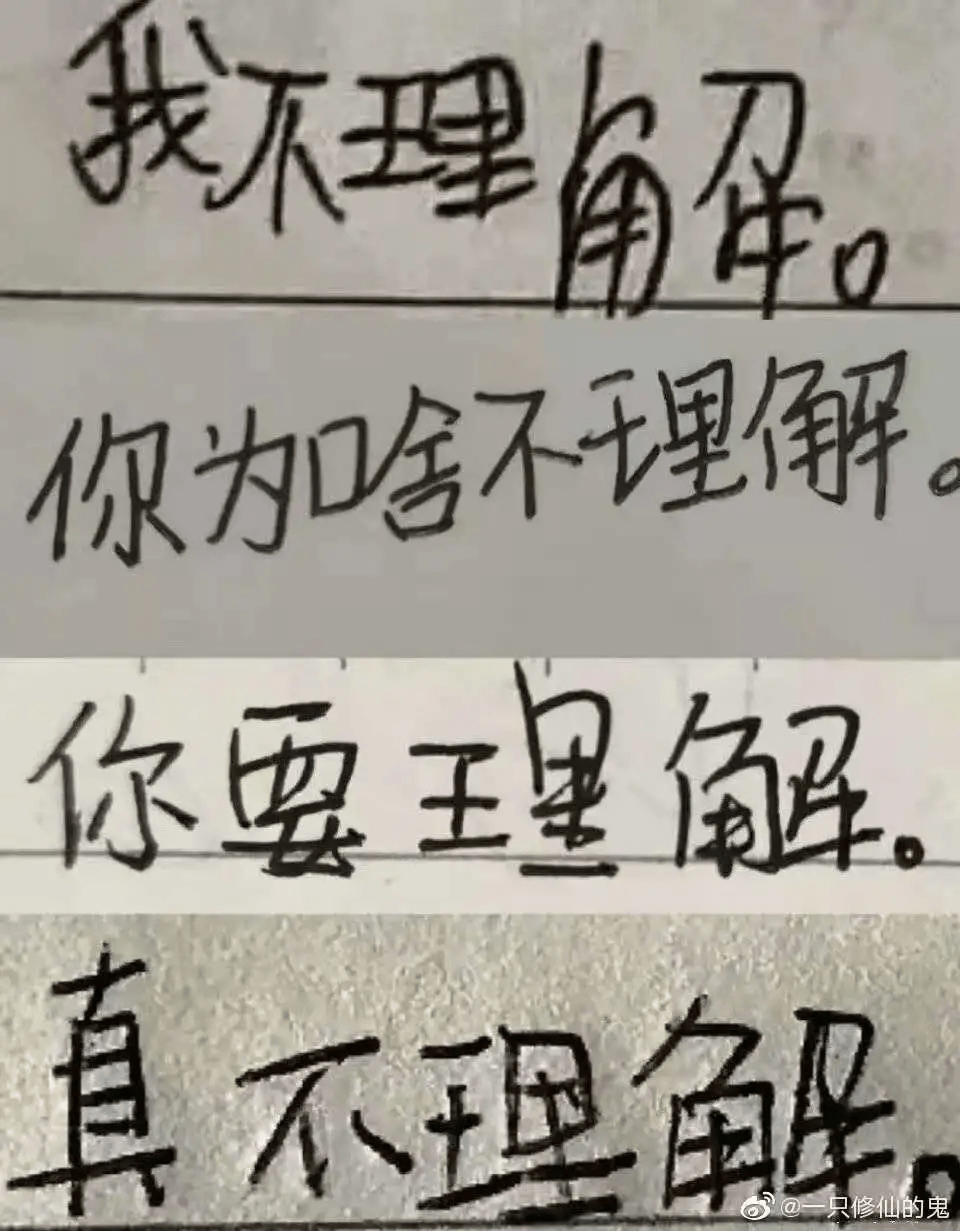 我不理解。
你为啥不理解。
你要理解。
真不理解。
@一只修仙的鬼